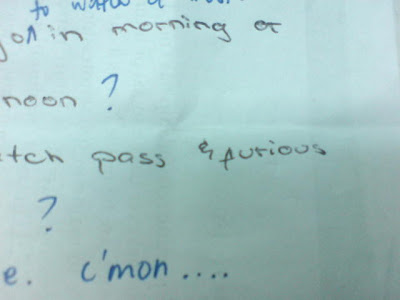 to watch a
go in morning or
noon ?
tch pass & furious
?
e. c'mon ....